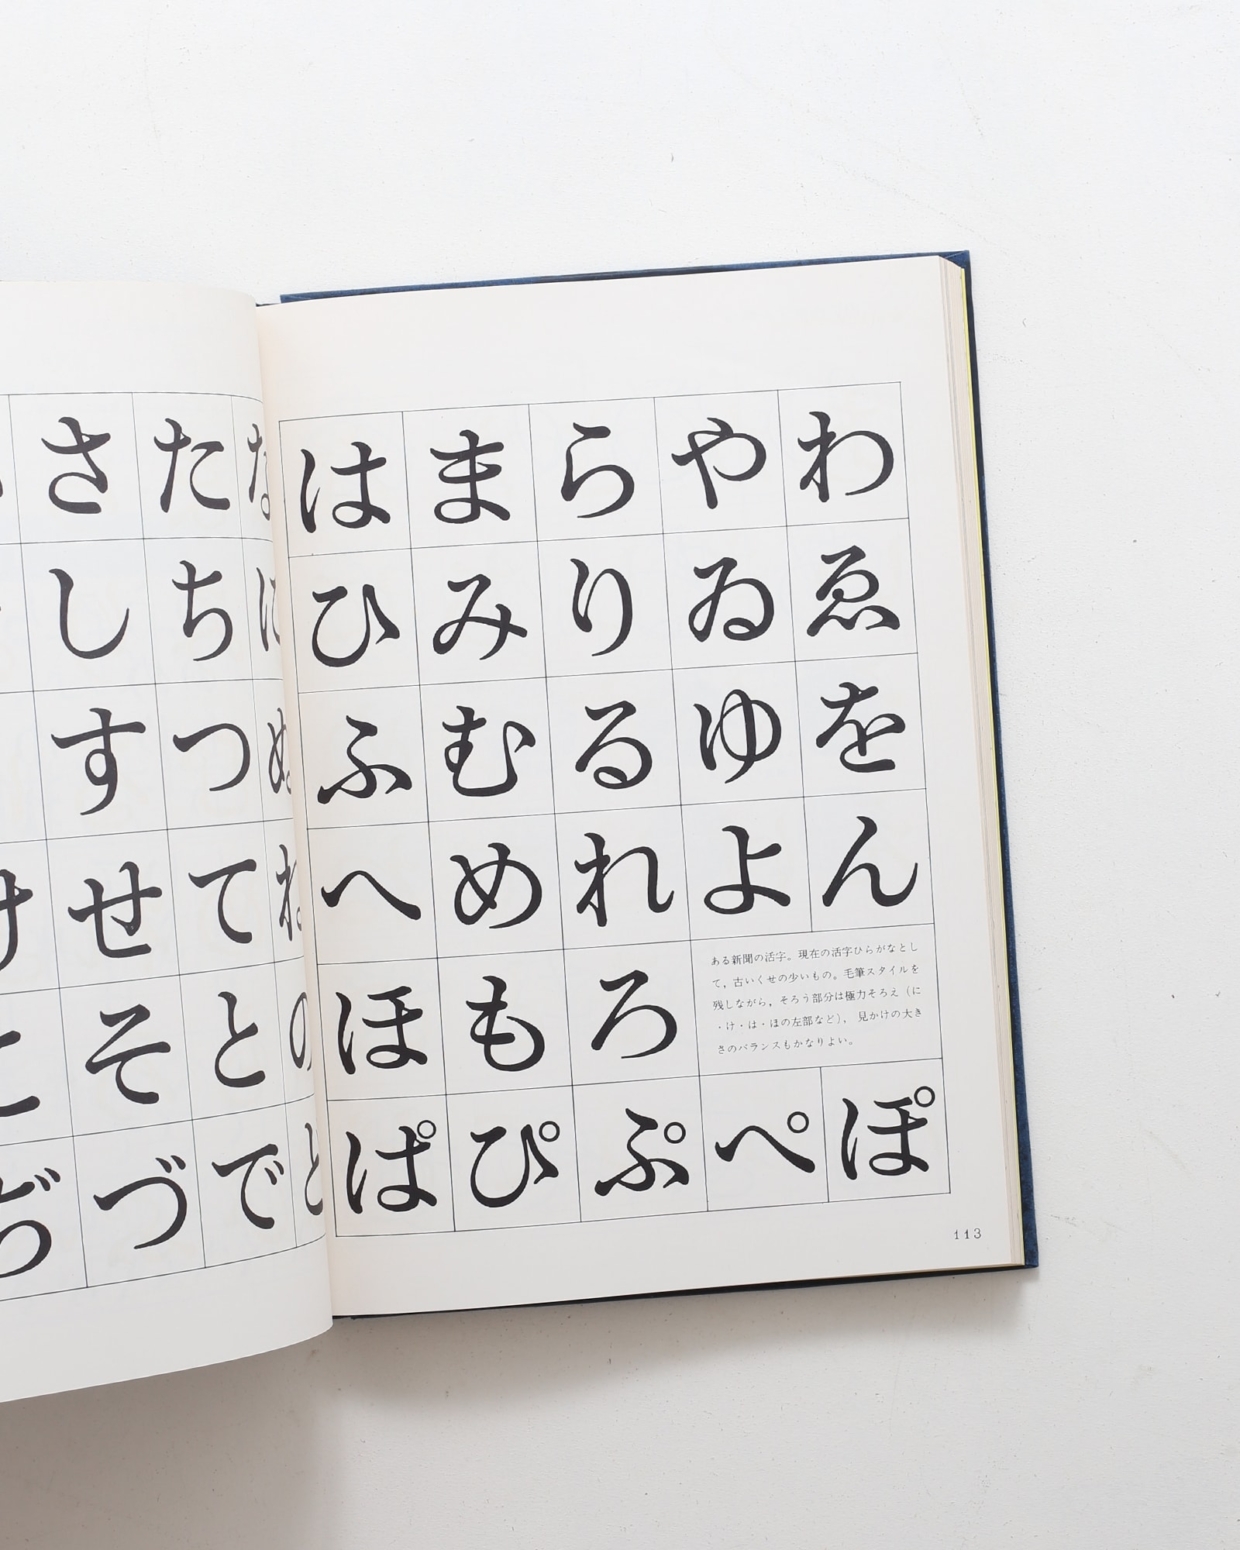 さ た な
し ち に
す つ ぬ
け せ て ね
こ そ と の
ぢ づ で ど
は ま ら や わ
ひ み り ゐ ゑ
ふ む る ゆ を
へ め れ よ ん
ほ も ろ
ある新聞の活字。現在の活字ひらがなとし
て，古いくせの少いもの。毛筆スタイルを
残しながら，そろう部分は極力そろえ（に
・け・は・ほの左部など），見かけの大き
さのバランスもかなりよい。
ぱ ぴ ぷ ぺ ぽ
113